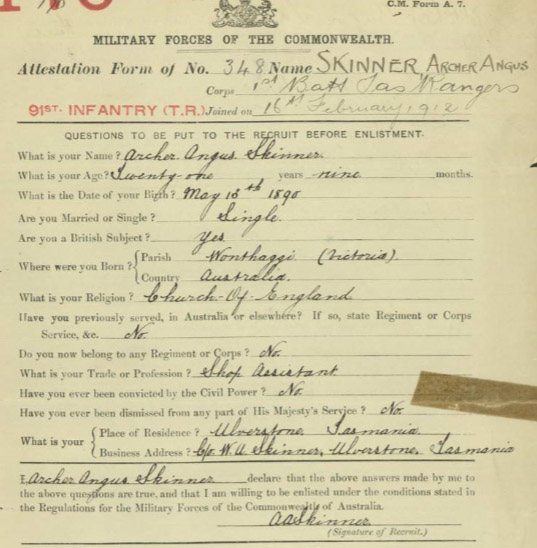 C.M. Form A. 7.
MILITARY FORCES OF THE COMMONWEALTH.
Attestation Form of No. 348 Name SKINNER, ARCHER ANGUS
Corps 1st Batt Tas Rangers
91ST. INFANTRY (T.R.) Joined on 16th February 1912
QUESTIONS TO BE PUT TO THE RECRUIT BEFORE ENLISTMENT.
What is your Name? Archer Angus Skinner.
What is your Age? Twenty-one years nine months.
What is the Date of your Birth? May 15th 1890
Are you Married or Single? Single.
Are you a British Subject? Yes
Where were you Born? { Parish Wonthaggi (Victoria).
Country Australia.
What is your Religion? Church Of England
Have you previously served, in Australia or elsewhere? If so, state Regiment or Corps
Service, &c. No.
Do you now belong to any Regiment or Corps? No.
What is your Trade or Profession? Shop Assistant
Have you ever been convicted by the Civil Power? No.
Have you ever been dismissed from any part of His Majesty's Service? No.
What is your { Place of Residence? Ulverstone, Tasmania.
Business Address? C/o. W.U. Skinner, Ulverstone, Tasmania
I, Archer Angus Skinner declare that the above answers made by me to
the above questions are true, and that I am willing to be enlisted under the conditions stated in
the Regulations for the Military Forces of the Commonwealth of Australia.
AASkinner
(Signature of Recruit.)